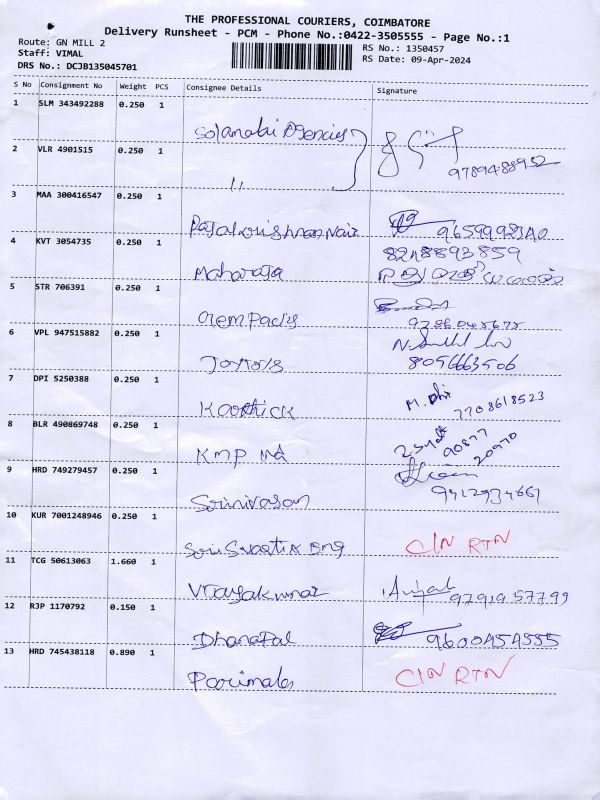 THE PROFESSIONAL COURIERS, COIMBATORE
Delivery Runsheet - PCM - Phone No.:0422-3505555 - Page No.:1
Route: GN MILL 2 RS No.: 1350457
Staff: VIMAL RS Date: 09-Apr-2024
DRS No.: DCJB135045701
S No Consignment No Weight PCS Consignee Details Signature
1 SLM 343492288 0.250 1
Solamalai Agencies
2 VLR 4901515 0.250 1
9789488952
"
3 MAA 300416547 0.250 1
Rajakrishnan Nair
4 KVT 3054735 0.250 1 8248893859
Maharaja
5 STR 706391 0.250 1
Gempacks
6 VPL 947515882 0.250 1
8056663506
7 DPI 5250388 0.250 1
Karthick 7708618523
8 BLR 490869748 0.250 1
KMP 90877 20970
9 HRD 749279457 0.250 1
Srinivasan
10 KUR 7001248946 0.250 1
Sri Swastik Eng C/N RTN
11 TCG 50613063 1.660 1
Vinayakumar 97919 57799
12 RJP 1170792 0.150 1
Dhanapal 9600454555
13 HRD 745438118 0.890 1
Parimala C/N RTN